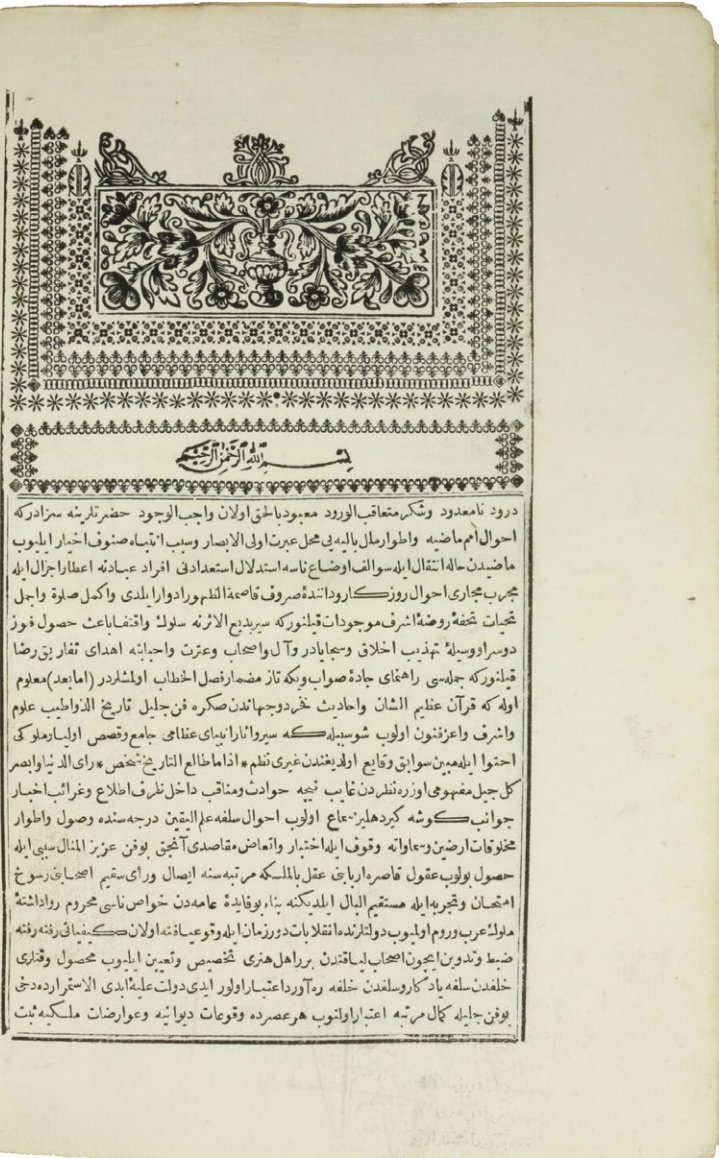 بسم الله الرحمن الرحيم
درود نامعدود وشكر متعاقب الورود معبود بالحق اولان واجب الوجود حضرتلرينه سزادركه
احوال امم ماضيه واطوار ملل باليه يى محل عبرت اولى الابصار وسبب انتباه صنوف اخيار ايليوب
ماضيدن حاله انتقال ايله سوالف اوضاع ناسه استدلال استعدادنى افراد عبادنه اعطا واجزال ايله
مجرب مجارى احوال روزكار وداننده صروف قاصمة الظهور ادوار ايلدى واكمل صلوة واجمل
تحيات تحفه روضه اشرف موجودات قيلنوركه سير بديع الاثرنه سلوك واقتفا باعث حصول فوز
دوسرا ووسيله تهذيب اخلاق وسجايادر وآل واصحاب وعترت واحبابنه اهداى تفاريق رضا
قيلنوركه جمله سى راهنماى جاده صواب ويكه تاز مضمار فصل الخطاب اولمشلردر (امابعد) معلوم
اوله كه قرآن عظيم الشان واحاديث فخر دوجهاندن صكره فن جليل تاريخ الذ واطيب علوم
واشرف واعز فنون اولوب شو سببيله كه سير وآثار انبياى عظامى جامع وقصص اوليا وملوكى
احتوا ايله مبين سوابق وقايع اولديغندن غيرى نظم * اذا ما طالع التاريخ شخص * راى الدنيا وابصر
كل جيل مفهومى اوزره نظردن غايب نيچه حوادث ومناقب داخل ظرف اطلاع وغرائب اخبار
جوانب كوشه كير دهليز سماع اولوب احوال سلفه علم اليقين درجه سنده وصول واطوار
مخلوقات ارضين وسماواته وقوف ايله اختبار واتعاض مقاصدى آنجق بوفن عزيز المنال سببى ايله
حصول بولوب عقول قاصره اربابنى عقل بالملكه مرتبه سنه ايصال وراى سقيم اصحابنى رسوخ
امتحان وتجربه ايله مستقيم البال ايلديكنه بناء بو فايده عامه دن خواص ناسى محروم رواداشته
ملوك عرب وروم اولميوب دولتلرنده انقلابات دور زمان ايله وقوعيافته اولان كيفياتى رفته رفته
ضبط وتدوين ايچون اصحاب لياقتدن بر راهل هنرى تخصيص وتعيين ايليوب محصول وقتلرى
خلفدن سلفه يادكار وسلفدن خلفه ره آورد اعتبار اولور ايدى دولت عليه ابدى الاستمرارده دخى
بوفن جليله كمال مرتبه اعتبار اولنوب هر عصرده وقوعات ديوانيه وعوارضات ملكيه ثبت